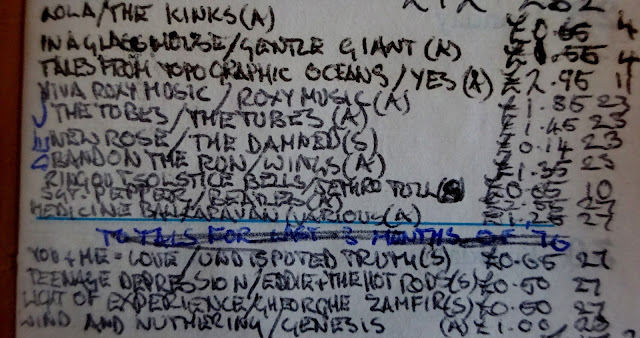 212 262
LOLA/THE KINKS (A) £0.65 4
IN A GLASS HOUSE/GENTLE GIANT (A) £ .55 4
TALES FROM TOPOGRAPHIC OCEANS/YES (A) £2.95 11
VIVA ROXY MUSIC/ROXY MUSIC (A) £1.85 23
THE TUBES/THE TUBES (A) £1.45 23
NEW ROSE/THE DAMNED (S) £0.14 23
BAND ON THE RUN/WINGS (A) £1.35 25
RING OUT SOLSTICE BELLS/JETHRO TULL (S) £0.65 10
SGT. PEPPER/BEATLES (A) £2.55 27
MEDICINE BALL CARAVAN/VARIOUS (A) £1.25 27
TOTALS FOR LAST 3 MONTHS OF 76
YOU + ME = LOVE/UNDISPUTED TRUTH (S) £0.65 27
TEENAGE DEPRESSION/EDDIE + THE HOT RODS (S) £0.50 27
LIGHT OF EXPERIENCE/GHEORGHE ZAMFIR (S) £0.50 27
WIND AND WUTHERING/GENESIS (A) £1.00 28